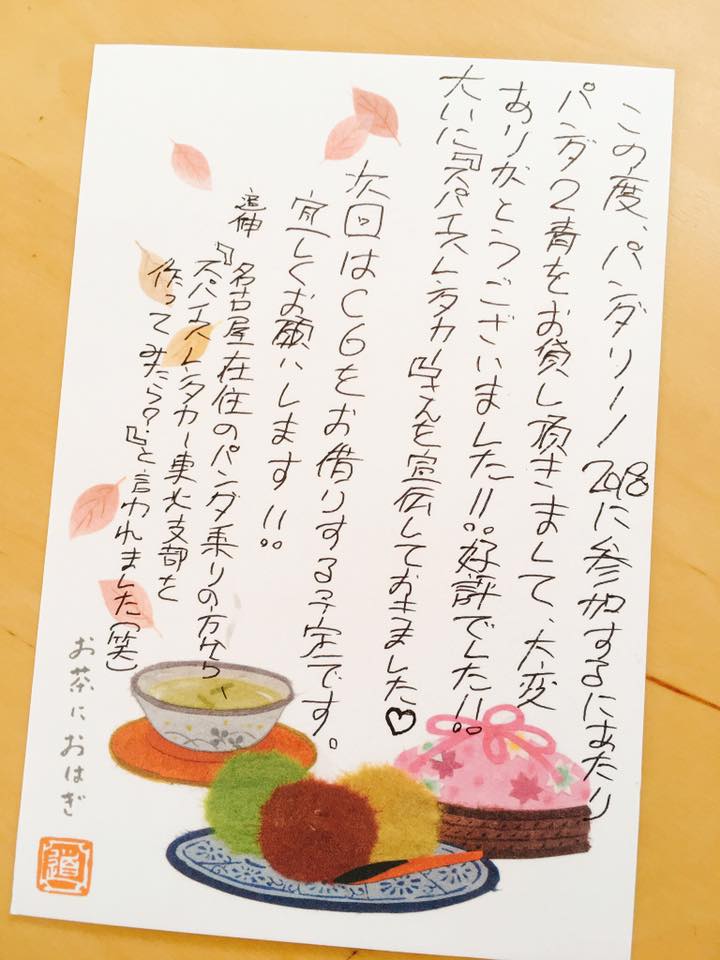 この度、パンダリーノ2018に参加するにあたり
パンダ2青をお貸し頂きまして、大変
ありがとうございました!!好評でした!!
大いに『スパエストレンタカー』さんを宣伝しておきました♡
次回はC6をお借りする予定です。
宜しくお願いします!!
追伸
『名古屋在住のパンダ乗りの方から
スパエストレンタカー東北支部を
作ってみたら?』と言われました(笑)
お茶におはぎ
道